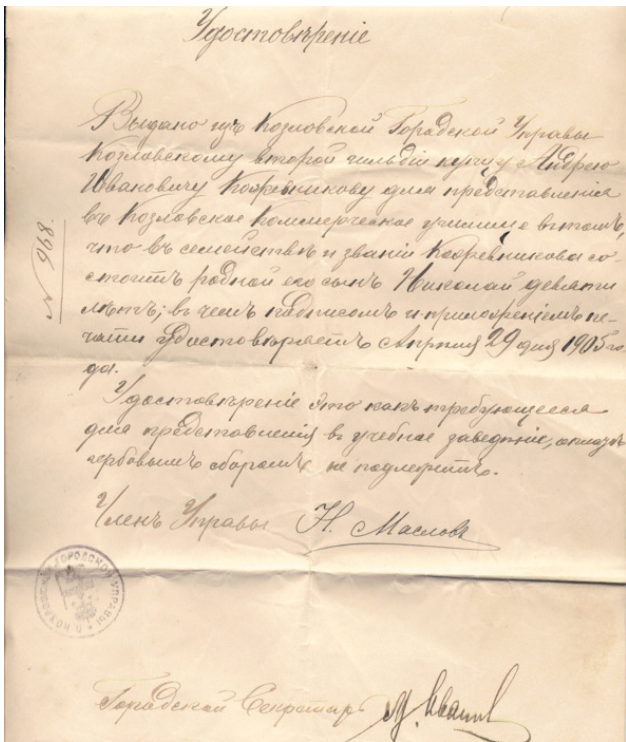 Удостовѣреніе
Выдано изъ Козловской Городской Управы
Козловскому второй гильдіи купцу Андрею
Ивановичу Кожевникову для представленія
въ Козловское Коммерческое училище втомъ,
что въ семействѣ и званіи Кожевникова со-
стоитъ родной его сынъ Николай девяти
лѣтъ; въ чемъ подписомъ и приложеніемъ пе-
чати удостовѣряетъ Апрѣля 29 дня 1905 го-
да.
№ 968.
Удостовѣреніе это какъ требующееся
для представленія въ учебное заведеніе, оплатѣ
гербовымъ сборомъ не подлежитъ.
Членъ Управы Н. Масловъ
Городской Секретарь